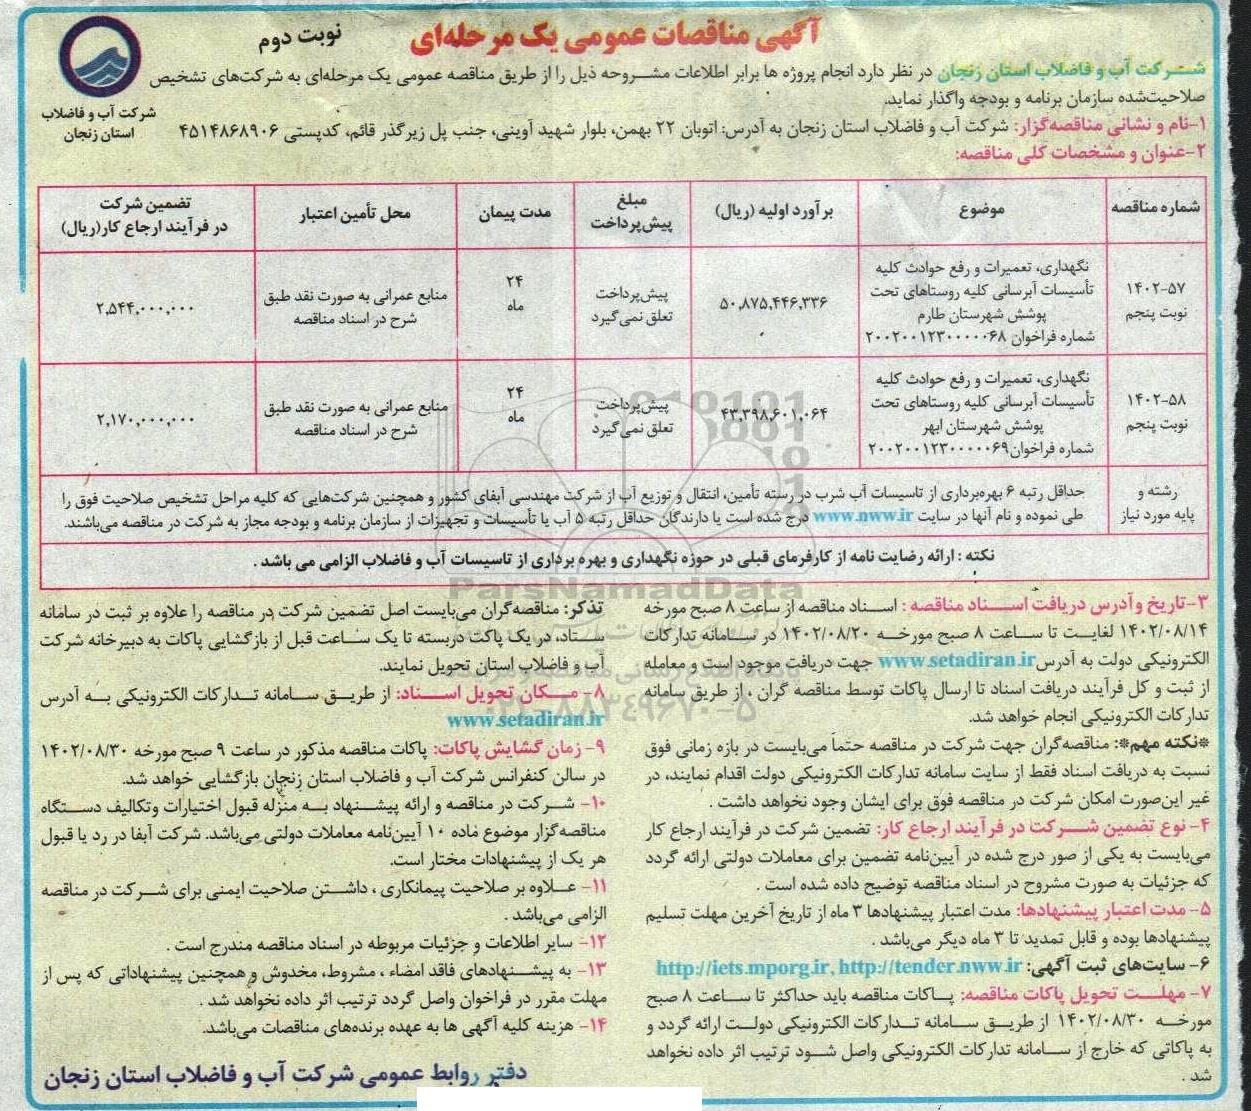 آگهی مناقصات عمومی یک مرحله‌ای
نوبت دوم
شرکت آب و فاضلاب
استان زنجان
شــرکت آب و فاضلاب استان زنجان در نظر دارد انجام پروژه ها برابر اطلاعات مشــروحه ذیل را از طریق مناقصه عمومی یک مرحله‌ای به شرکت‌های تشخیص
صلاحیت‌شده سازمان برنامه و بودجه واگذار نماید.
۱-نام و نشانی مناقصه‌گزار: شرکت آب و فاضلاب استان زنجان به آدرس: اتوبان ۲۲ بهمن، بلوار شهید آوینی، جنب پل زیرگذر قائم، کدپستی ۴۵۱۴۸۶۸۹۰۶
۲-عنوان و مشخصات کلی مناقصه:
شماره مناقصه
موضوع
برآورد اولیه (ریال)
مبلغ
پیش‌پرداخت
مدت پیمان
محل تأمین اعتبار
تضمین شرکت
در فرآیند ارجاع کار(ریال)
۱۴۰۲-۵۷
نوبت پنجم
نگهداری، تعمیرات و رفع حوادث کلیه
تأسیسات آبرسانی کلیه روستاهای تحت
پوشش شهرستان طارم
شماره فراخوان ۲۰۰۲۰۰۱۲۳۰۰۰۰۰۶۸
۵۰,۸۷۵,۴۴۶,۳۳۶
پیش‌پرداخت
تعلق نمی‌گیرد
۲۴
ماه
منابع عمرانی به صورت نقد طبق
شرح در اسناد مناقصه
۲,۵۴۴,۰۰۰,۰۰۰
۱۴۰۲-۵۸
نوبت پنجم
نگهداری، تعمیرات و رفع حوادث کلیه
تأسیسات آبرسانی کلیه روستاهای تحت
پوشش شهرستان ابهر
شماره فراخوان۲۰۰۲۰۰۱۲۳۰۰۰۰۰۶۹
۴۳,۳۹۸,۶۰۱,۰۶۴
پیش‌پرداخت
تعلق نمی‌گیرد
۲۴
ماه
منابع عمرانی به صورت نقد طبق
شرح در اسناد مناقصه
۲,۱۷۰,۰۰۰,۰۰۰
رشته و
پایه مورد نیاز
حداقل رتبه ۶ بهره‌برداری از تاسیسات آب شرب در رسته تأمین، انتقال و توزیع آب از شرکت مهندسی آبفای کشور و همچنین شرکت‌هایی که کلیه مراحل تشخیص صلاحیت فوق را
طی نموده و نام آنها در سایت www.nww.ir درج شده است یا دارندگان حداقل رتبه ۵ آب یا تأسیسات و تجهیزات از سازمان برنامه و بودجه مجاز به شرکت در مناقصه می‌باشند.
نکته : ارائه رضایت نامه از کارفرمای قبلی در حوزه نگهداری و بهره برداری از تاسیسات آب و فاضلاب الزامی می باشد .
ParsNamadData
۰۲۱-۸۸۳۴۹۶۷۰-۵
۳-تاریخ و آدرس دریافت اســناد مناقصه : اسـناد مناقصه از ساعت ۸ صبح مورخه
۱۴۰۲/۰۸/۱۴ لغایت تا ســاعت ۸ صبح مورخــه ۱۴۰۲/۰۸/۲۰ در ســامانه تدارکات
الکترونیکی دولت به آدرس www.setadiran.ir جهت دریافت موجود است و معامله
از ثبت و کل فرآیند دریافت اسناد تا ارسال پاکات توسط مناقصه گران ، از طریق سامانه
تدارکات الکترونیکی انجام خواهد شد.
*نکته مهم*: مناقصه‌گران جهت شرکت در مناقصه حتماً می‌بایست در بازه زمانی فوق
نسبت به دریافت اسناد فقط از سایت سامانه تدارکات الکترونیکی دولت اقدام نمایند، در
غیر این‌صورت امکان شرکت در مناقصه فوق برای ایشان وجود نخواهد داشت .
۴- نوع تضمین شــرکت در فرآیند ارجاع کار: تضمین شرکت در فرآیند ارجاع کار
می‌بایست به یکی از صور درج شده در آیین‌نامه تضمین برای معاملات دولتی ارائه گردد
که جزئیات به صورت مشروح در اسناد مناقصه توضیح داده شده است .
۵- مدت اعتبار پیشنهادها: مدت اعتبار پیشنهادها ۳ ماه از تاریخ آخرین مهلت تسلیم
پیشنهادها بوده و قابل تمدید تا ۳ ماه دیگر می‌باشد .
۶- سایت‌های ثبت آگهی: http://iets.mporg.ir, http://tender.nww.ir
۷- مهلــت تحویل پاکات مناقصه: پــاکات مناقصه باید حداکثر تا ســاعت ۸ صبح
مورخــه ۱۴۰۲/۰۸/۳۰ از طریــق سامانه تــدارکات الکترونیکی دولــت ارائه گردد و
به پاکاتی که خارج از ســامانه تدارکات الکترونیکی واصل شــود ترتیب اثر داده نخواهد
شد .
تذکر: مناقصه‌گران می‌بایست اصل تضمین شرکت در مناقصه را علاوه بر ثبت در سامانه
ســتاد، در یک پاکت دربسته تا یک ساعت قبل از بازگشایی پاکات به دبیرخانه شرکت
آب و فاضلاب استان تحویل نمایند.
۸- مــکان تحویل اســناد: از طریــق سـامانه تــدارکات الکترونیکی بــه آدرس
www.setadiran.ir
۹- زمان گشایش پاکات: پاکات مناقصه مذکور در ساعت ۹ صبح مورخه ۱۴۰۲/۰۸/۳۰
در سالن کنفرانس شرکت آب و فاضلاب استان زنجان بازگشایی خواهد شد.
۱۰- شــرکت در مناقصه و ارائه پیشــنهاد بــه منزله قبول اختیارات وتکالیف دســتگاه
مناقصه‌گزار موضوع ماده ۱۰ آیین‌نامه معاملات دولتی می‌باشد. شرکت آبفا در رد یا قبول
هر یک از پیشنهادات مختار است.
۱۱- عــلاوه بر صلاحیت پیمانکاری ، داشــتن صلاحیت ایمنی برای شــرکت در مناقصه
الزامی می‌باشد .
۱۲- سایر اطلاعات و جزئیات مربوطه در اسناد مناقصه مندرج است .
۱۳- به پیشــنهادهای فاقد امضاء ، مشروط، مخدوش و همچنین پیشنهاداتی که پس از
مهلت مقرر در فراخوان واصل گردد ترتیب اثر داده نخواهد شد .
۱۴- هزینه کلیه آگهی ها به عهده برنده‌های مناقصات می‌باشد.
دفتر روابط عمومی شرکت آب و فاضلاب استان زنجان